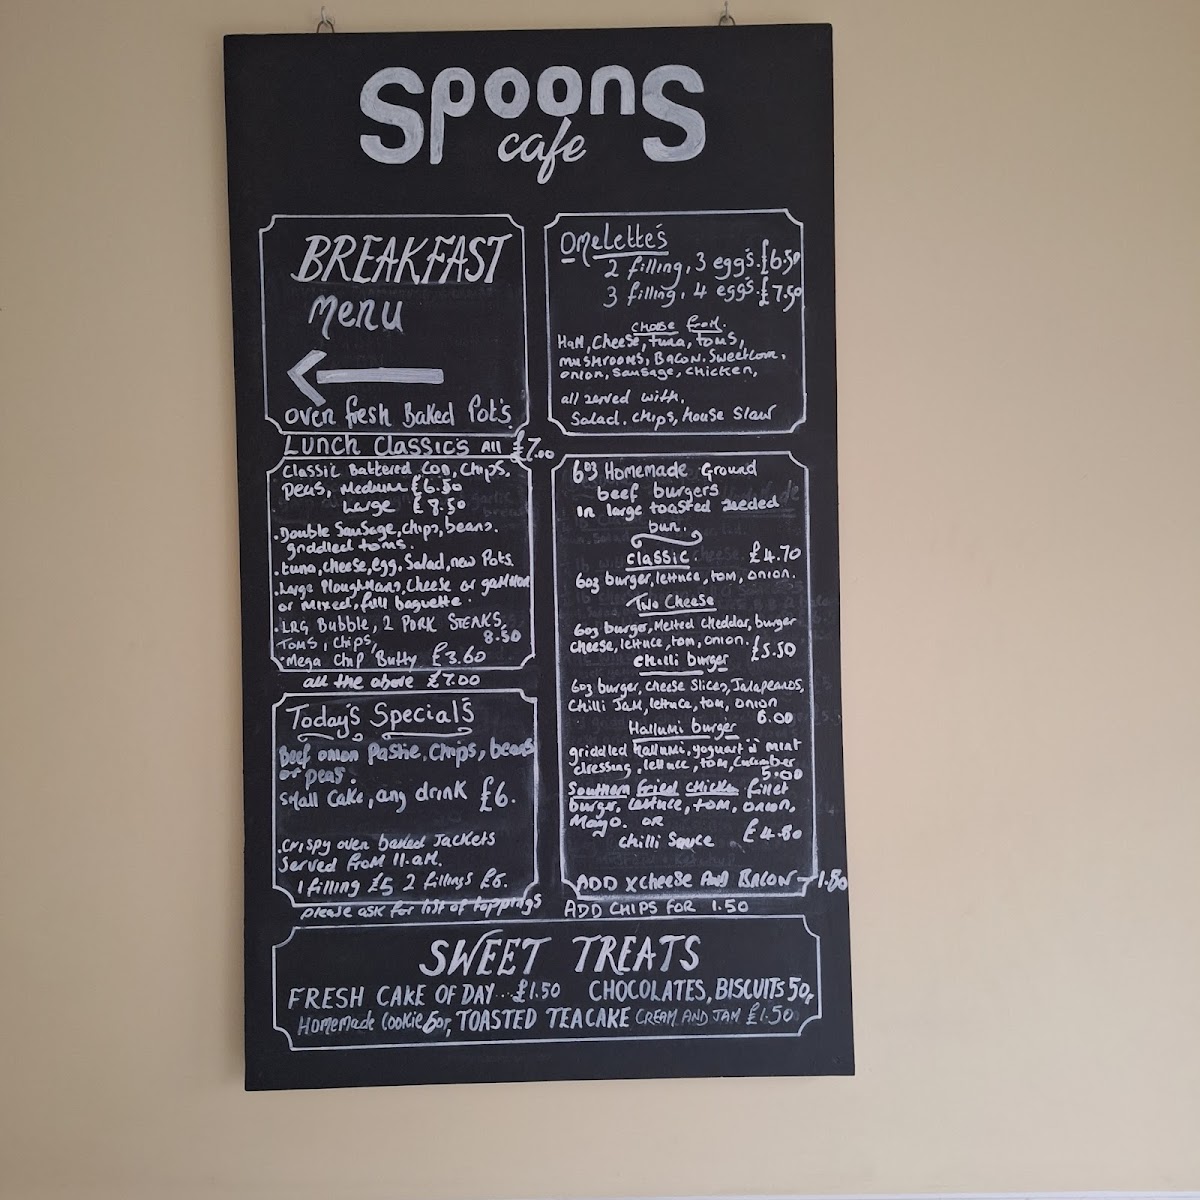 Spoons
cafe
BREAKFAST
Menu
oven fresh Baked Pot's
Lunch Classic's All £7.00
Classic Battered Cod, Chips,
Peas, Medium £6.50
Large £8.50
.Double Sausage, chips, beans.
griddled toms.
.tuna, cheese, egg. Salad, new Pots.
.Large Ploughmans, Cheese or gammon
or mixed, full baguette.
.LRG Bubble, 2 PORK STEAKS,
TOMS, Chips, 8.50
.Mega Chip Butty £3.60
all the above £7.00
Today's Special's
Beef onion Pastie, Chips, beans
or peas.
Small Cake, any drink £6.
.Crispy oven baked Jackets
Served from 11.a.m.
1 filling £5 2 fillings £6.
please ask for list of toppings
Omelette's
2 filling, 3 egg's. £6.50
3 filling. 4 egg's. £7.50
choose from.
Ham, Cheese, tuna, toms,
mushrooms, Bacon. Sweetcorn.
onion, sausage, chicken,
all served with.
Salad. Chips, house slaw
6oz Homemade Ground
beef burgers
in large toasted seeded
bun.
Classic. £4.70
6oz burger, lettuce, tom, onion.
Two Cheese
6oz burger, Melted Cheddar, burger
cheese, lettuce, tom, onion. £5.50
Chilli burger
6oz burger, cheese slices, Jalapeanos,
Chilli Jam, lettuce, tom, onion
6.00
Hallumi burger
griddled Hallumi, yoguart n mint
dressing, lettuce, tom, Cucumber
5.00
Southern Fried Chicken fillet
burger, lettuce, tom, onion,
Mayo. OR
chilli Sauce £4.80
ADD x cheese AND BACON - 1.80
ADD CHIPS FOR 1.50
SWEET TREATS
FRESH CAKE OF DAY... £1.50 CHOCOLATES, BISCUITS 50p
Homemade Cookie 60p, TOASTED TEACAKE CREAM AND JAM £1.50